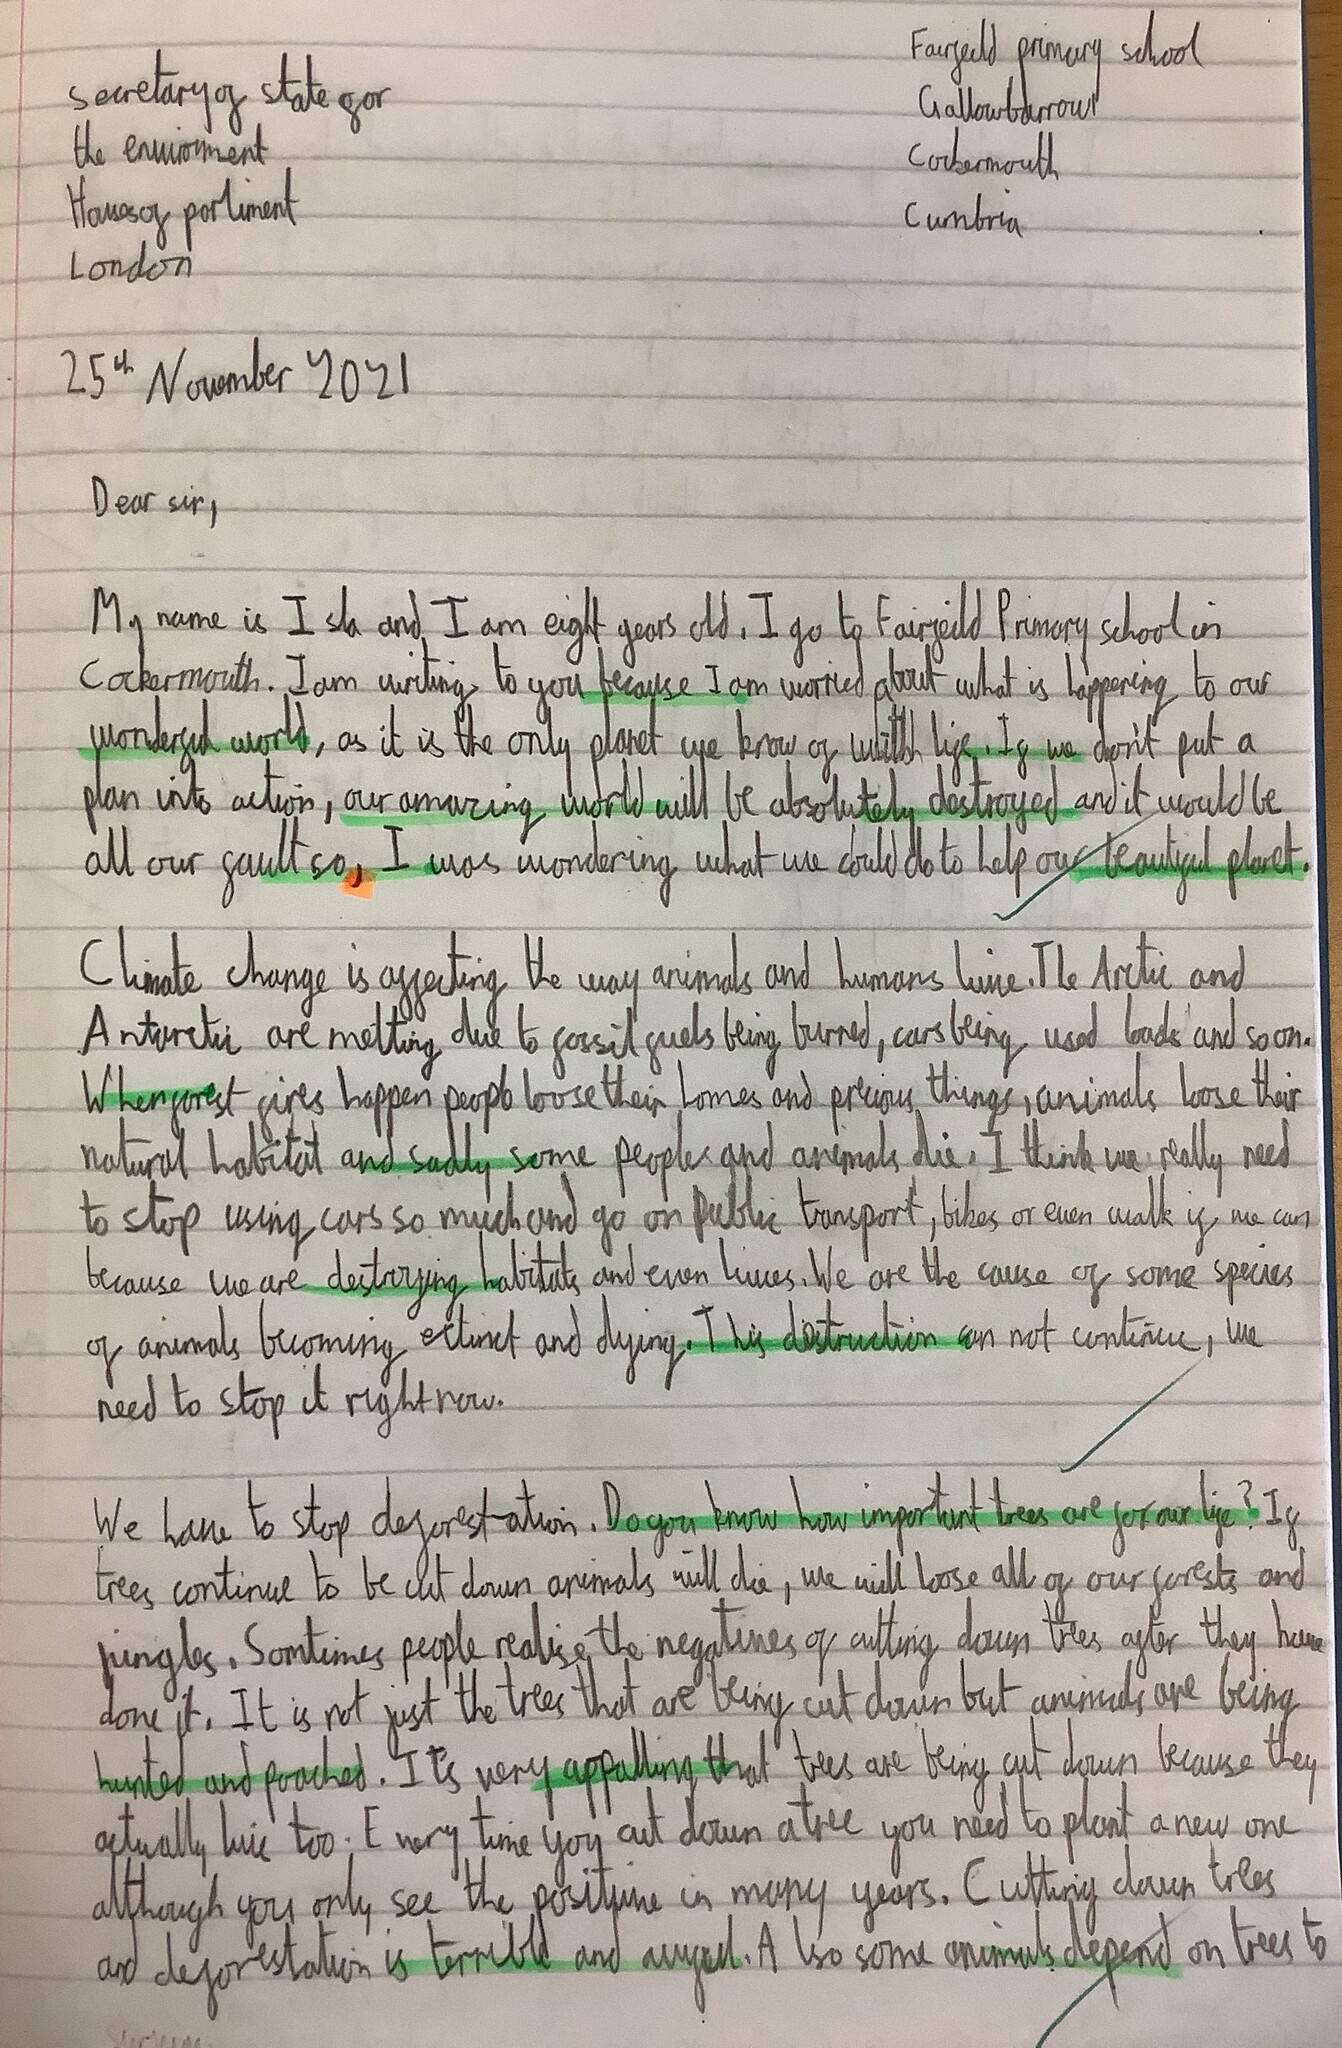 Fairfeild primary school
Gallowbarrow
Cockermouth
Cumbria
Secretary of state for
the enviroment
Houses of parliment
London
25th November 2021
Dear sir,
My name is Isla and I am eight years old. I go to Fairfeild Primary school in
Cockermouth. I am writing to you because I am worried about what is happening to our
wonderful world, as it is the only planet we know of with life. If we don't put a
plan into action, our amazing world will be absolutely destroyed and it would be
all our fault so, I was wondering what we could do to help our beautiful planet.
Climate change is affecting the way animals and humans live. The Arctic and
Antarctic are melting due to fossil fuels being burned, cars being used loads and so on.
When forest fires happen people loose their homes and precious things, animals loose their
natural habitat and sadly some people and animals die. I think we really need
to stop using cars so much and go on public transport, bikes or even walk if we can
because we are destroying habitats and even lives. We are the cause of some species
of animals becoming extinct and dying. This destruction can not continue, we
need to stop it right now.
We have to stop deforestation. Do you know how important trees are for our life? If
trees continue to be cut down animals will die, we will loose all of our forests and
jungles. Somtimes people realise the negatives of cutting down trees after they have
done it. It is not just the trees that are being cut down but animals are being
hunted and poached. It's very appalling that trees are being cut down because they
actually live too. Every time you cut down a tree you need to plant a new one
although you only see the positive in many years. Cutting down trees
and deforestation is terrible and awful. Also some animals depend on trees to